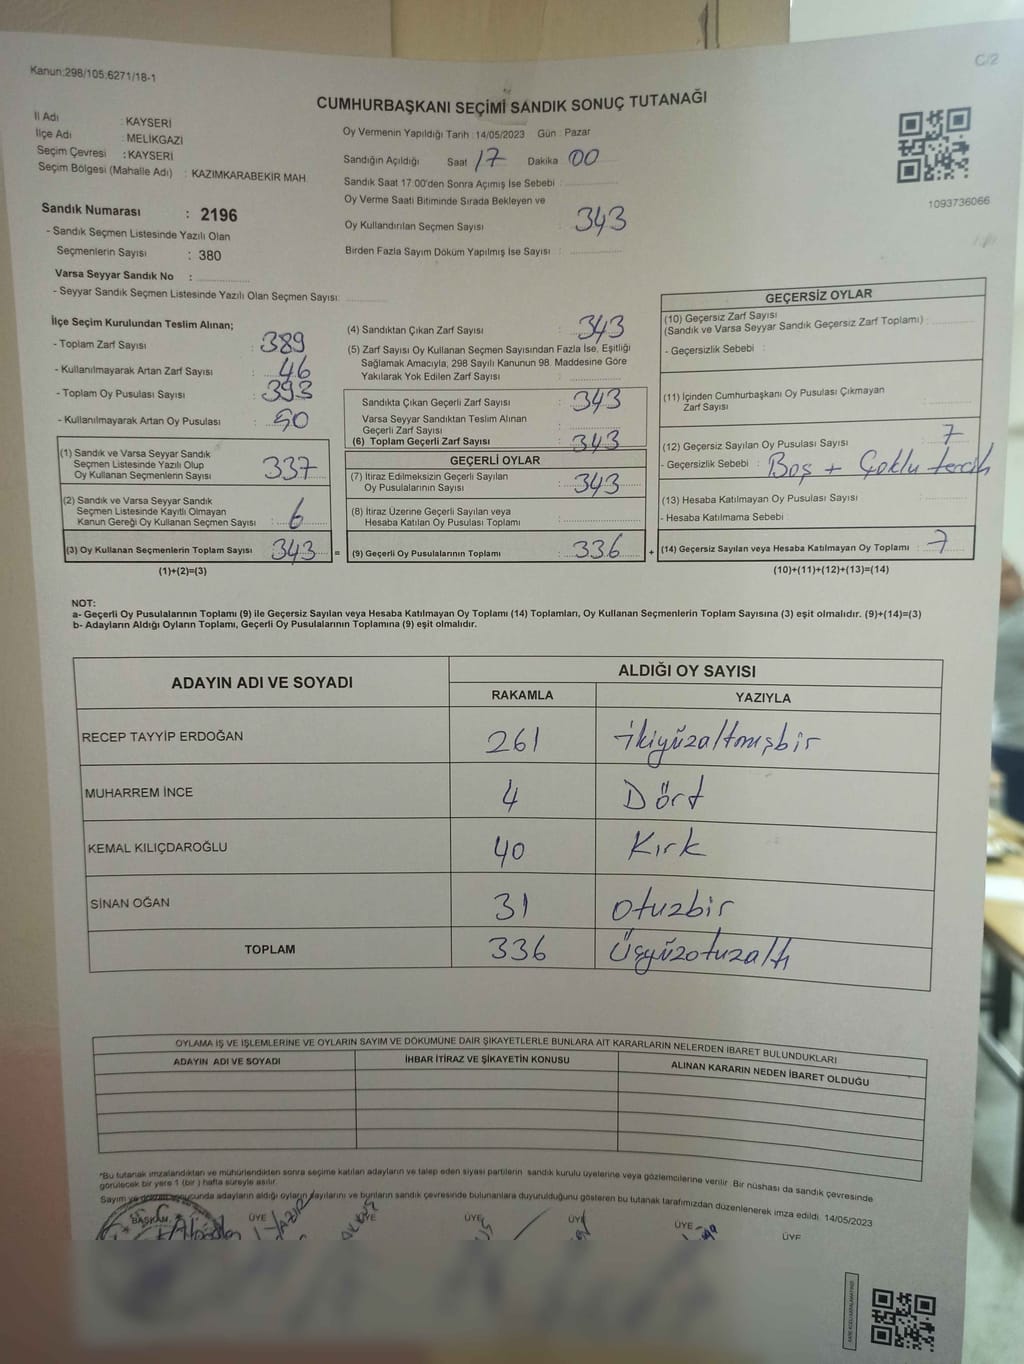 Kanun:298/105,6271/18-1
C/2
CUMHURBAŞKANI SEÇİMİ SANDIK SONUÇ TUTANAĞI
İl Adı : KAYSERİ
İlçe Adı : MELİKGAZİ
Seçim Çevresi : KAYSERİ
Seçim Bölgesi (Mahalle Adı) : KAZIMKARABEKİR MAH.
Sandık Numarası : 2196
- Sandık Seçmen Listesinde Yazılı Olan
Seçmenlerin Sayısı : 380
Varsa Seyyar Sandık No :
- Seyyar Sandık Seçmen Listesinde Yazılı Olan Seçmen Sayısı:
Oy Vermenin Yapıldığı Tarih : 14/05/2023 Gün : Pazar
Sandığın Açıldığı Saat 17 Dakika 00
Sandık Saat 17:00'den Sonra Açımış İse Sebebi :
Oy Verme Saati Bitiminde Sırada Bekleyen ve
Oy Kullandırılan Seçmen Sayısı : 343
Birden Fazla Sayım Döküm Yapılmış İse Sayısı :
1093736066
İlçe Seçim Kurulundan Teslim Alınan;
- Toplam Zarf Sayısı : 389
- Kullanılmayarak Artan Zarf Sayısı : 46
- Toplam Oy Pusulası Sayısı : 393
- Kullanılmayarak Artan Oy Pusulası : 50
(1) Sandık ve Varsa Seyyar Sandık
Seçmen Listesinde Yazılı Olup
Oy Kullanan Seçmenlerin Sayısı : 337
(2) Sandık ve Varsa Seyyar Sandık
Seçmen Listesinde Kayıtlı Olmayan
Kanun Gereği Oy Kullanan Seçmen Sayısı : 6
(3) Oy Kullanan Seçmenlerin Toplam Sayısı : 343 =
(1)+(2)=(3)
(4) Sandıktan Çıkan Zarf Sayısı : 343
(5) Zarf Sayısı Oy Kullanan Seçmen Sayısından Fazla İse, Eşitliği
Sağlamak Amacıyla, 298 Sayılı Kanunun 98. Maddesine Göre
Yakılarak Yok Edilen Zarf Sayısı :
Sandıkta Çıkan Geçerli Zarf Sayısı : 343
Varsa Seyyar Sandıktan Teslim Alınan
Geçerli Zarf Sayısı :
(6) Toplam Geçerli Zarf Sayısı : 343
GEÇERLİ OYLAR
(7) İtiraz Edilmeksizin Geçerli Sayılan
Oy Pusulalarının Sayısı : 343
(8) İtiraz Üzerine Geçerli Sayılan veya
Hesaba Katılan Oy Pusulası Toplamı :
(9) Geçerli Oy Pusulalarının Toplamı : 336 +
GEÇERSİZ OYLAR
(10) Geçersiz Zarf Sayısı
(Sandık ve Varsa Seyyar Sandık Geçersiz Zarf Toplamı) :
- Geçersizlik Sebebi :
(11) İçinden Cumhurbaşkanı Oy Pusulası Çıkmayan
Zarf Sayısı :
(12) Geçersiz Sayılan Oy Pusulası Sayısı : 7
- Geçersizlik Sebebi : Boş + Çoklu tercih
(13) Hesaba Katılmayan Oy Pusulası Sayısı :
- Hesaba Katılmama Sebebi :
(14) Geçersiz Sayılan veya Hesaba Katılmayan Oy Toplamı : 7
(10)+(11)+(12)+(13)=(14)
NOT:
a- Geçerli Oy Pusulalarının Toplamı (9) ile Geçersiz Sayılan veya Hesaba Katılmayan Oy Toplamı (14) Toplamları, Oy Kullanan Seçmenlerin Toplam Sayısına (3) eşit olmalıdır. (9)+(14)=(3)
b- Adayların Aldığı Oyların Toplamı, Geçerli Oy Pusulalarının Toplamına (9) eşit olmalıdır.
ADAYIN ADI VE SOYADI ALDIĞI OY SAYISI
RAKAMLA YAZIYLA
RECEP TAYYİP ERDOĞAN 261 ikiyüzaltmışbir
MUHARREM İNCE 4 Dört
KEMAL KILIÇDAROĞLU 40 Kırk
SİNAN OĞAN 31 otuzbir
TOPLAM 336 Üçyüzotuzaltı
OYLAMA İŞ VE İŞLEMLERİNE VE OYLARIN SAYIM VE DÖKÜMÜNE DAİR ŞİKAYETLERLE BUNLARA AİT KARARLARIN NELERDEN İBARET BULUNDUKLARI
ADAYIN ADI VE SOYADI İHBAR İTİRAZ VE ŞİKAYETİN KONUSU ALINAN KARARIN NEDEN İBARET OLDUĞU
*Bu tutanak imzalandıktan ve mühürlendikten sonra seçime katılan adayların ve talep eden siyasi partilerin sandık kurulu üyelerine veya gözlemcilerine verilir. Bir nüshası da sandık çevresinde
görülecek bir yere 1 (bir) hafta süreyle asılır.
Sayım ve döküm sonucunda adayların aldığı oyların sayılarını ve bunların sandık çevresinde bulunanlara duyurulduğunu gösteren bu tutanak tarafımızdan düzenlenerek imza edildi. 14/05/2023
BAŞKAN ÜYE ÜYE ÜYE ÜYE ÜYE ÜYE